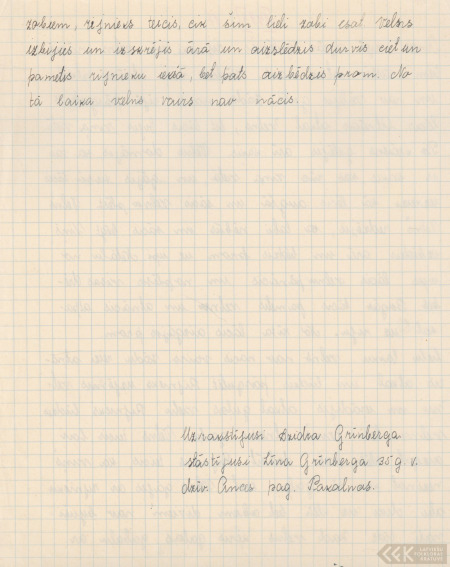 zobiem, rijnieks teicis, cik šim lieli zobi esot velns
izbijies un izskrējis ārā un aizslēdzis durvis ciet un
pametis rijnieku iekšā, bet pats aizbēdzis prom. No
tā laika velns vairs nav nācis.
Uzrakstījusi Dzidra Grīnberga
stāstījusi Līna Grīnberga 35 g. v.
dzīv. Ances pag. Pakalnos.
LATVIEŠU
FOLKLORAS
KRĀTUVE